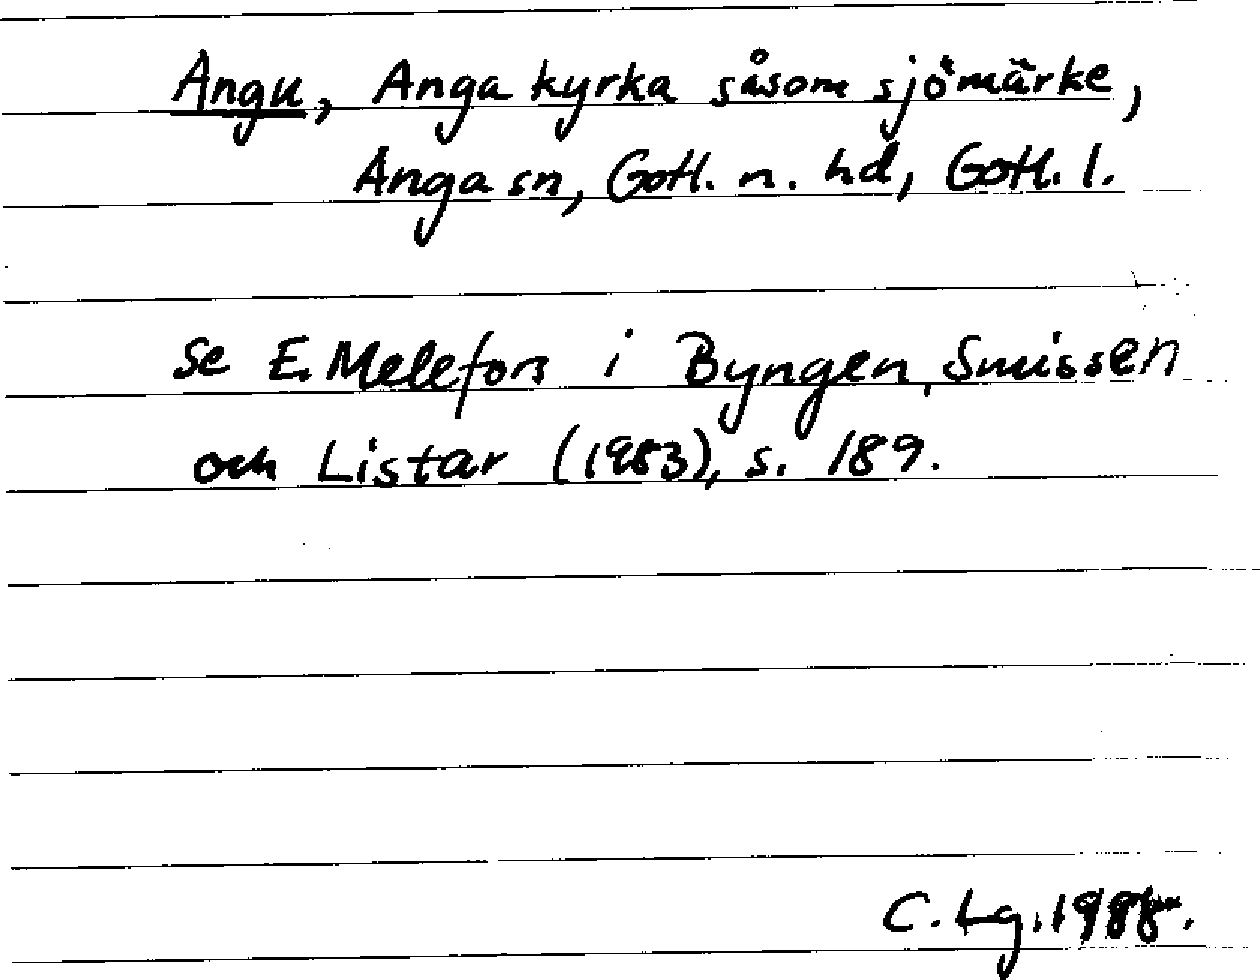 Angu, Anga kyrka såsom sjömärke,
Anga sn, Gotl. n. hd, Gotl. l.
se E. Melefors i Byngen, Smissen
och Listar (1983), s. 189.
C. Lg. 1988.